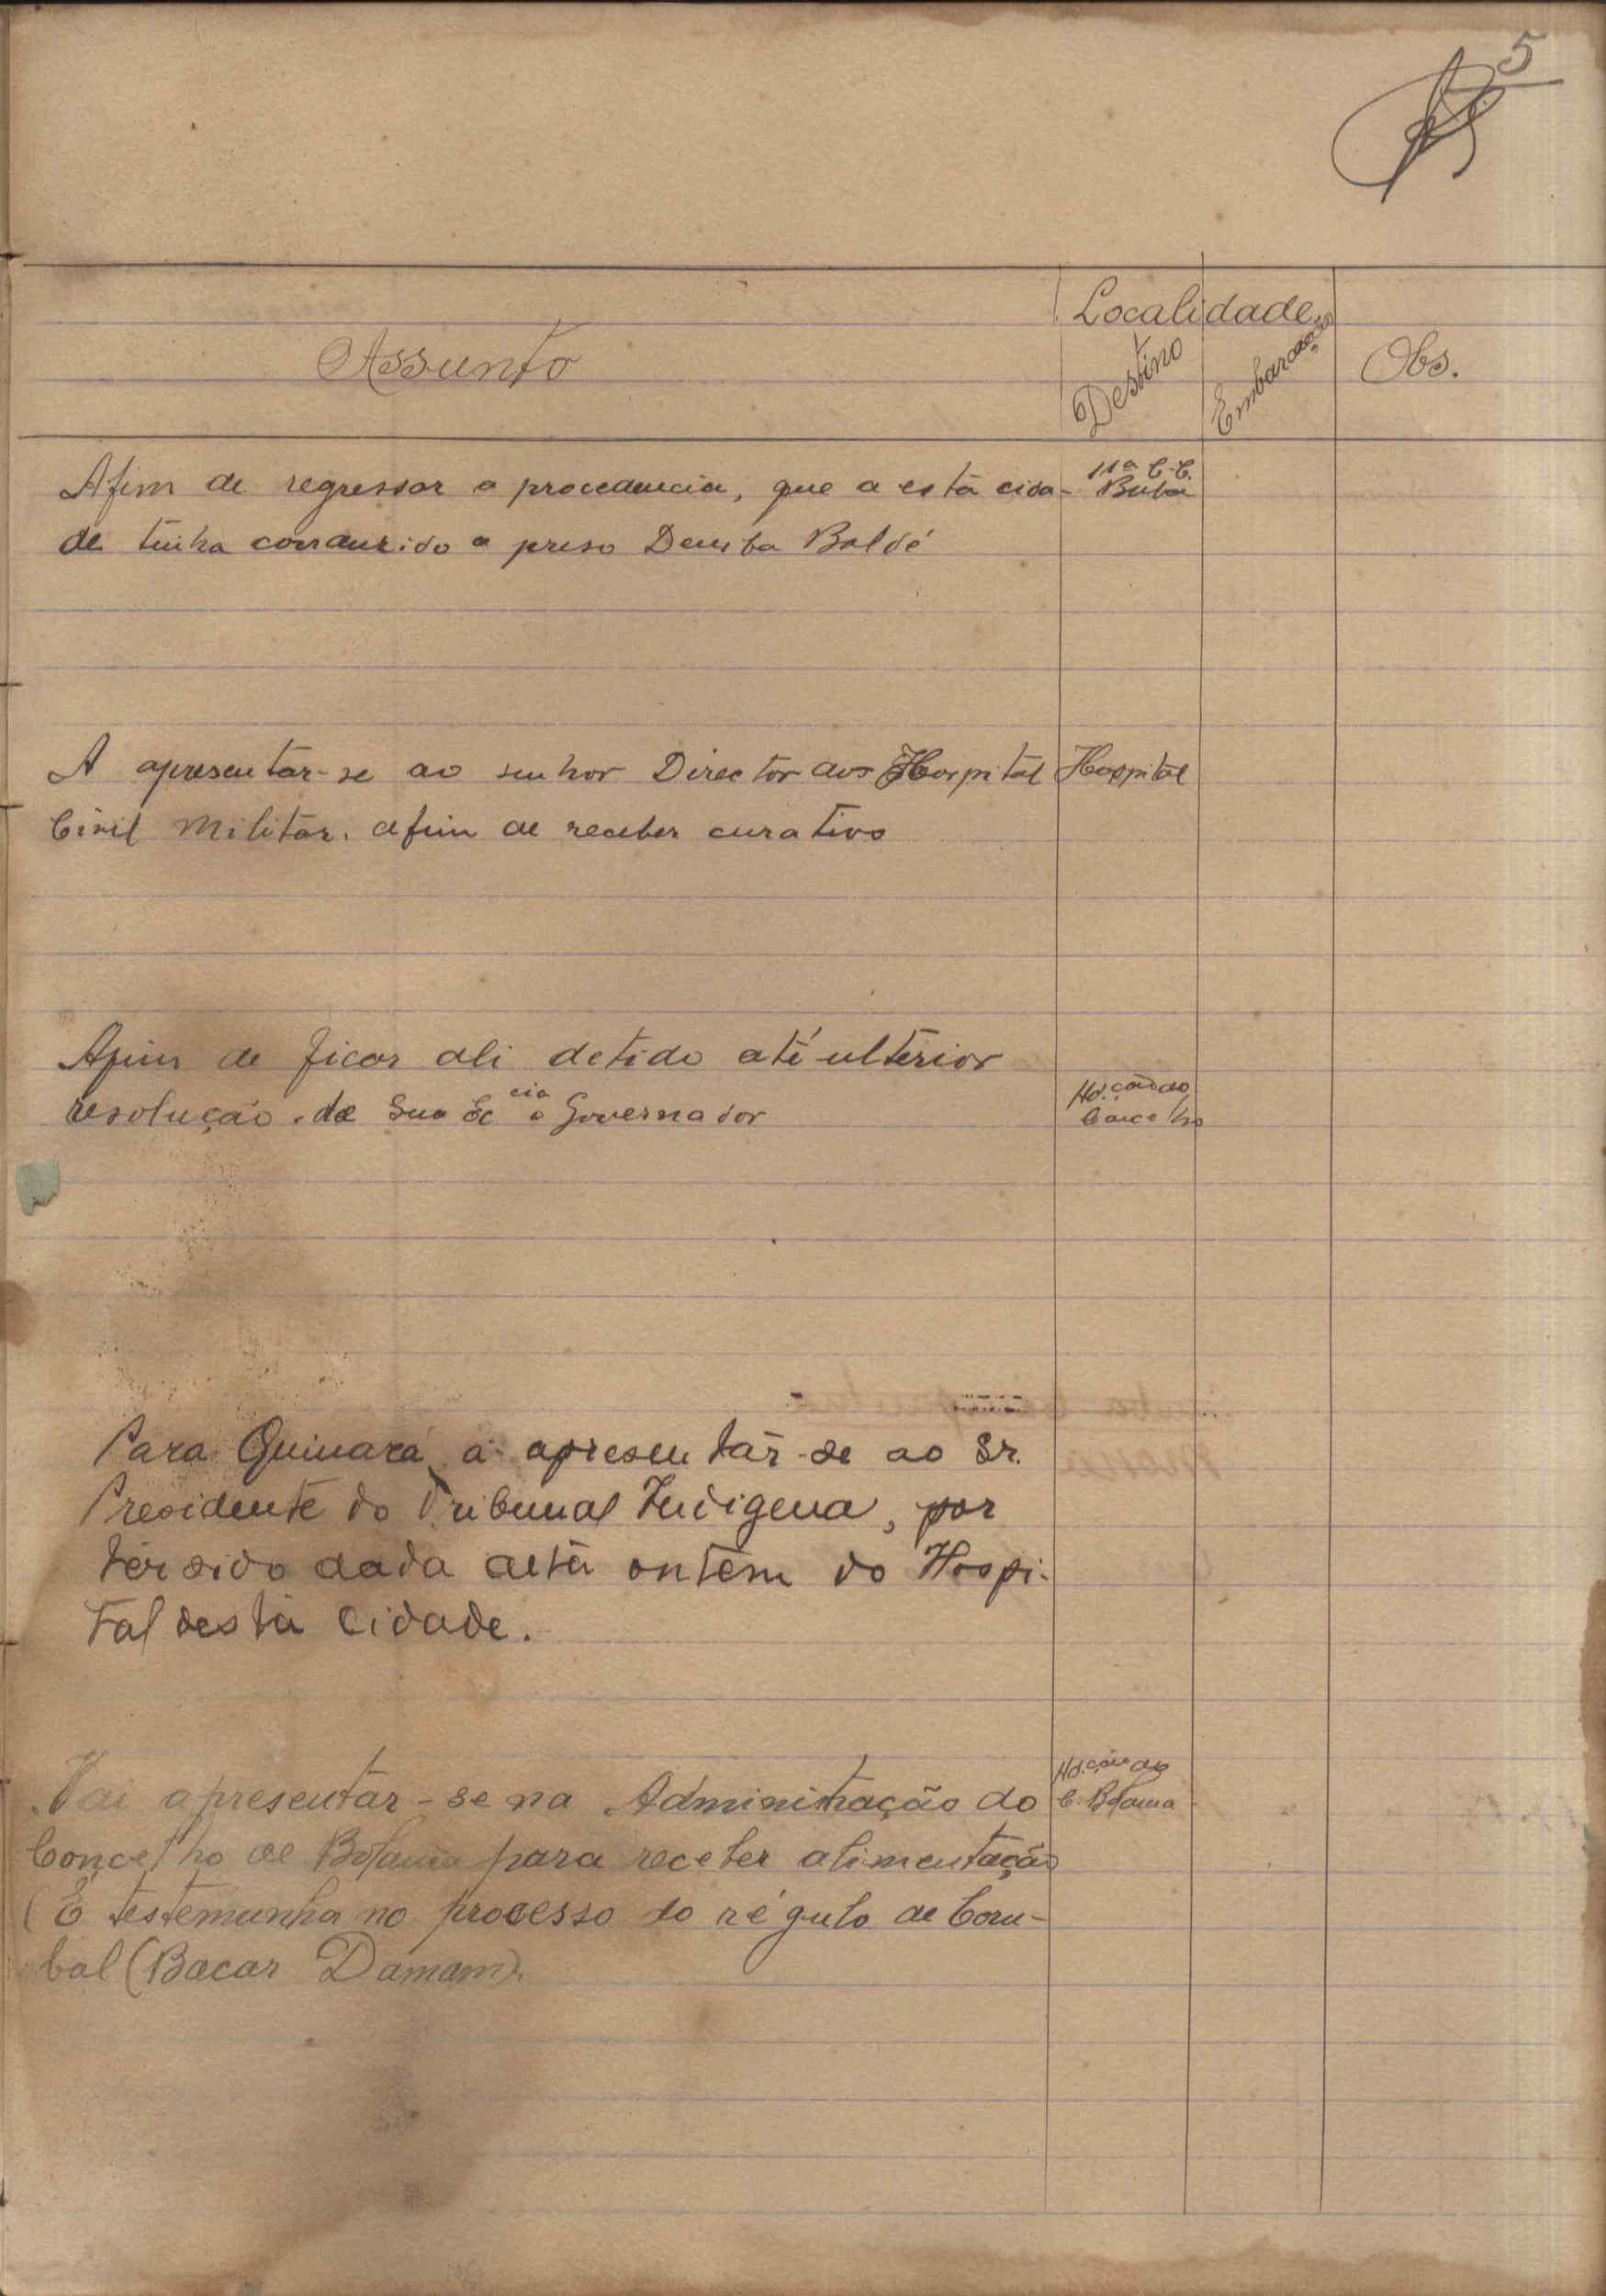 5
Localidade
Assunto
Destino
Embarcação
Obs.
Afim de regressar a procedencia, que a esta cida- 11ª C.C.
Buba
de tinha conduzido o preso Demba Baldé
A apresentar-se ao senhor Director dos Hospital Hospital
Civil Militar. afim de receber curativo
Afim de ficar ali detido até ulterior
resolução de Sua Ec cia o Governador
Ad.ção do
Concelho
Para Quinará a apresentar-se ao Sr.
Presidente do Tribunal Indigena, por
ter sido dada alta ontem do Hospi-
tal desta cidade.
Ad.ção do
Vai apresentar-se na Administração do C. Bolama
Concelho de Bolama para receber alimentação
(É testemunha no processo do régulo de Coru-
bal (Bacar Damam).